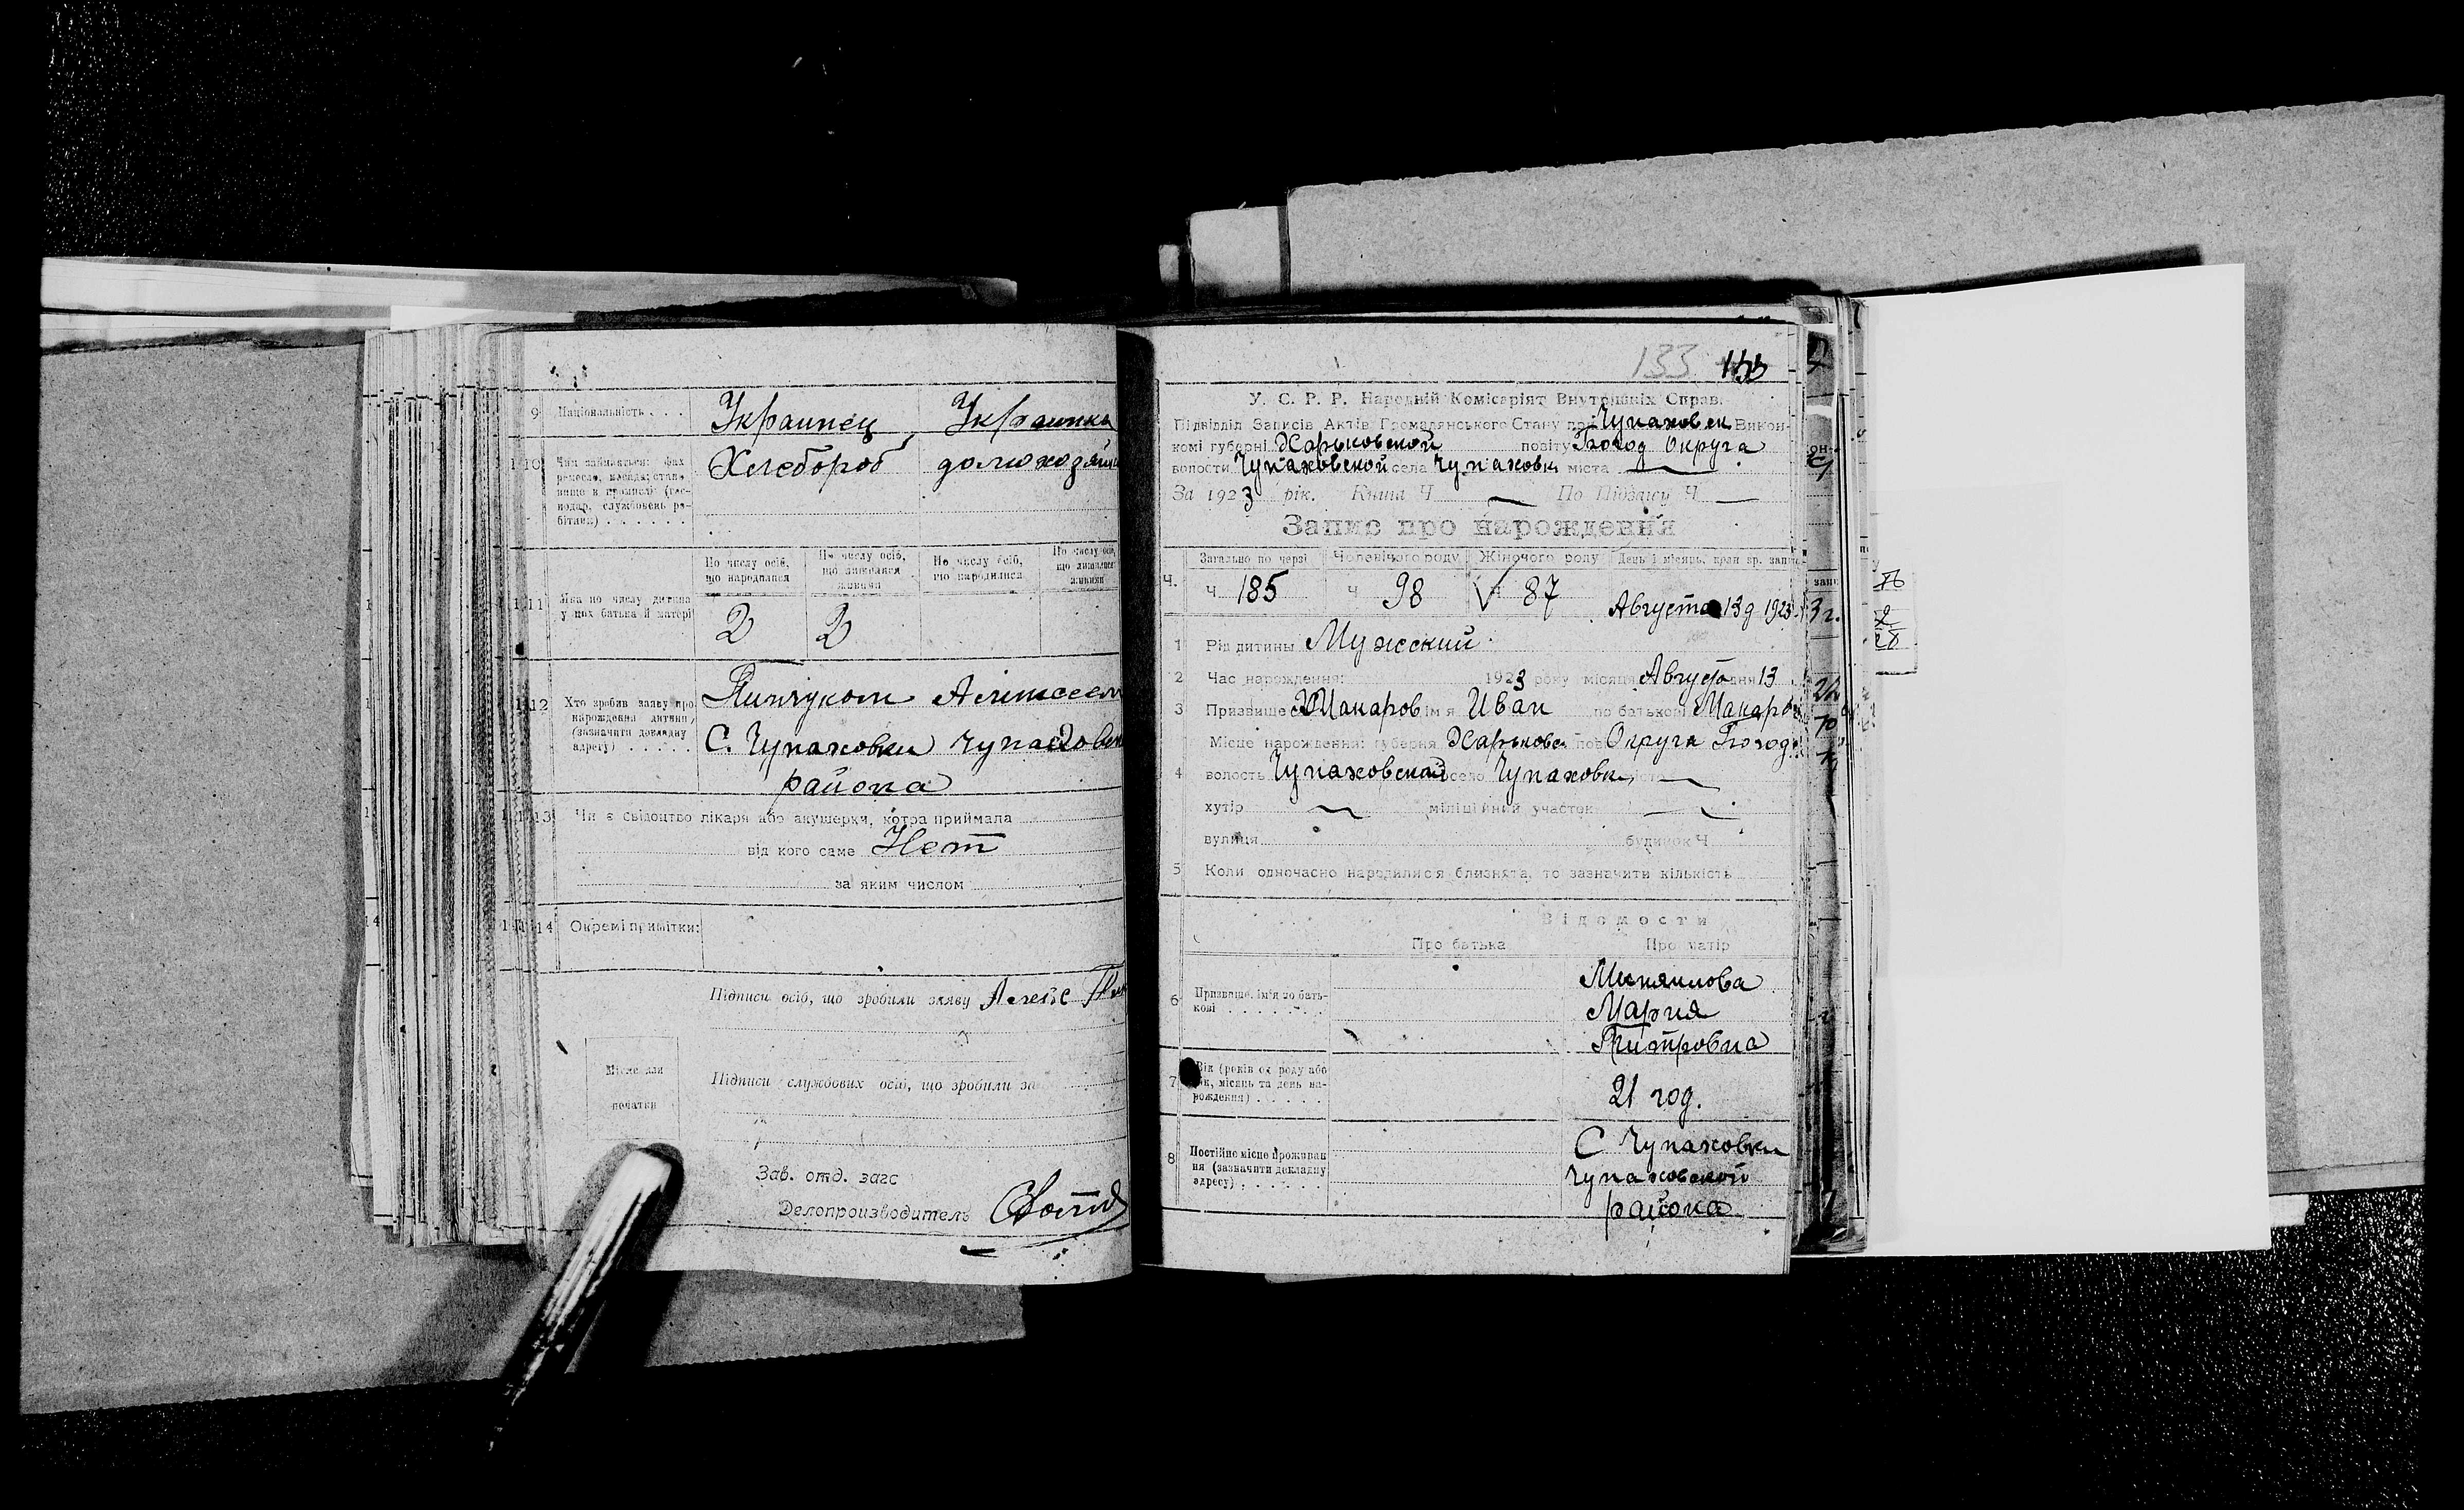 9 Національність . . .
Украинец Украинка
10 Чим займається: фах
ремесло, посада; стано-
вище в промислі (гос-
подар, службовець ро-
бітник) . . . . . .
Хлебороб домохозяйк
По числу осіб, що народилися
По числу осіб, що лишилися живими
По числу осіб, що народилися
По числу осіб, що лишилися живими
11 Яка по числу дитина
у цих батька й матері
2 2
12 Хто зробив заяву про
нарождення дитини,
(зазначити докладну
адресу) . . . . .
Пинчуком Алексеем
С. Чупаховки Чупаховск
района
13 Чи є свідоцтво лікаря або акушерки, котра приймала
від кого саме Нет
за яким числом
14 Окремі примітки:
Підписи осіб, що зробили заяву
Місце для
печатки
Підписи службових осіб, що зробили за
Зав. отд. загс
Делопроизводитель
133 133
У. С. Р. Р. Народній Комісаріят Внутрішніх Справ.
Підвідділ Записів Актів Громадянського Стану при Чупаховск Викон-
комі губерні Харьковской повіту Богод Округа
волости Чупаховской села Чупаховки міста —
За 1923 рік. Книга Ч — По Підпису Ч —
Запис про нарождення
Ч. Загально по черзі Чоловічого роду Жіночого роду День і місяць, коли вр. запис
Ч 185 Ч 98 V Ч 87 Августа 13 д 1923
1 Рід дитини Мужеский
2 Час нарождення: 1923 року місяця Августа дня 13
3 Призвище Макаров ім'я Иван по батькові Макаров
Місце нарождення: губерня Харьковск пов Округа Богод
4 волость Чупаховская село Чупаховки —
хутір — міліційний участок —
вулиця будинок Ч
5 Коли одночасно народилися близнята, то зазначити кількість
Відомости
Про батька Про матір
6 Призвище, ім'я по бать-
кові . . . . . . .
Мария
7 Вік (років од роду або
рік, місяць та день на-
рождення) . . . . .
21 год.
8 Постійне місце проживан
ня (зазначити докладну
адресу) . . . . . .
С Чупаховки
Чупаховской
района